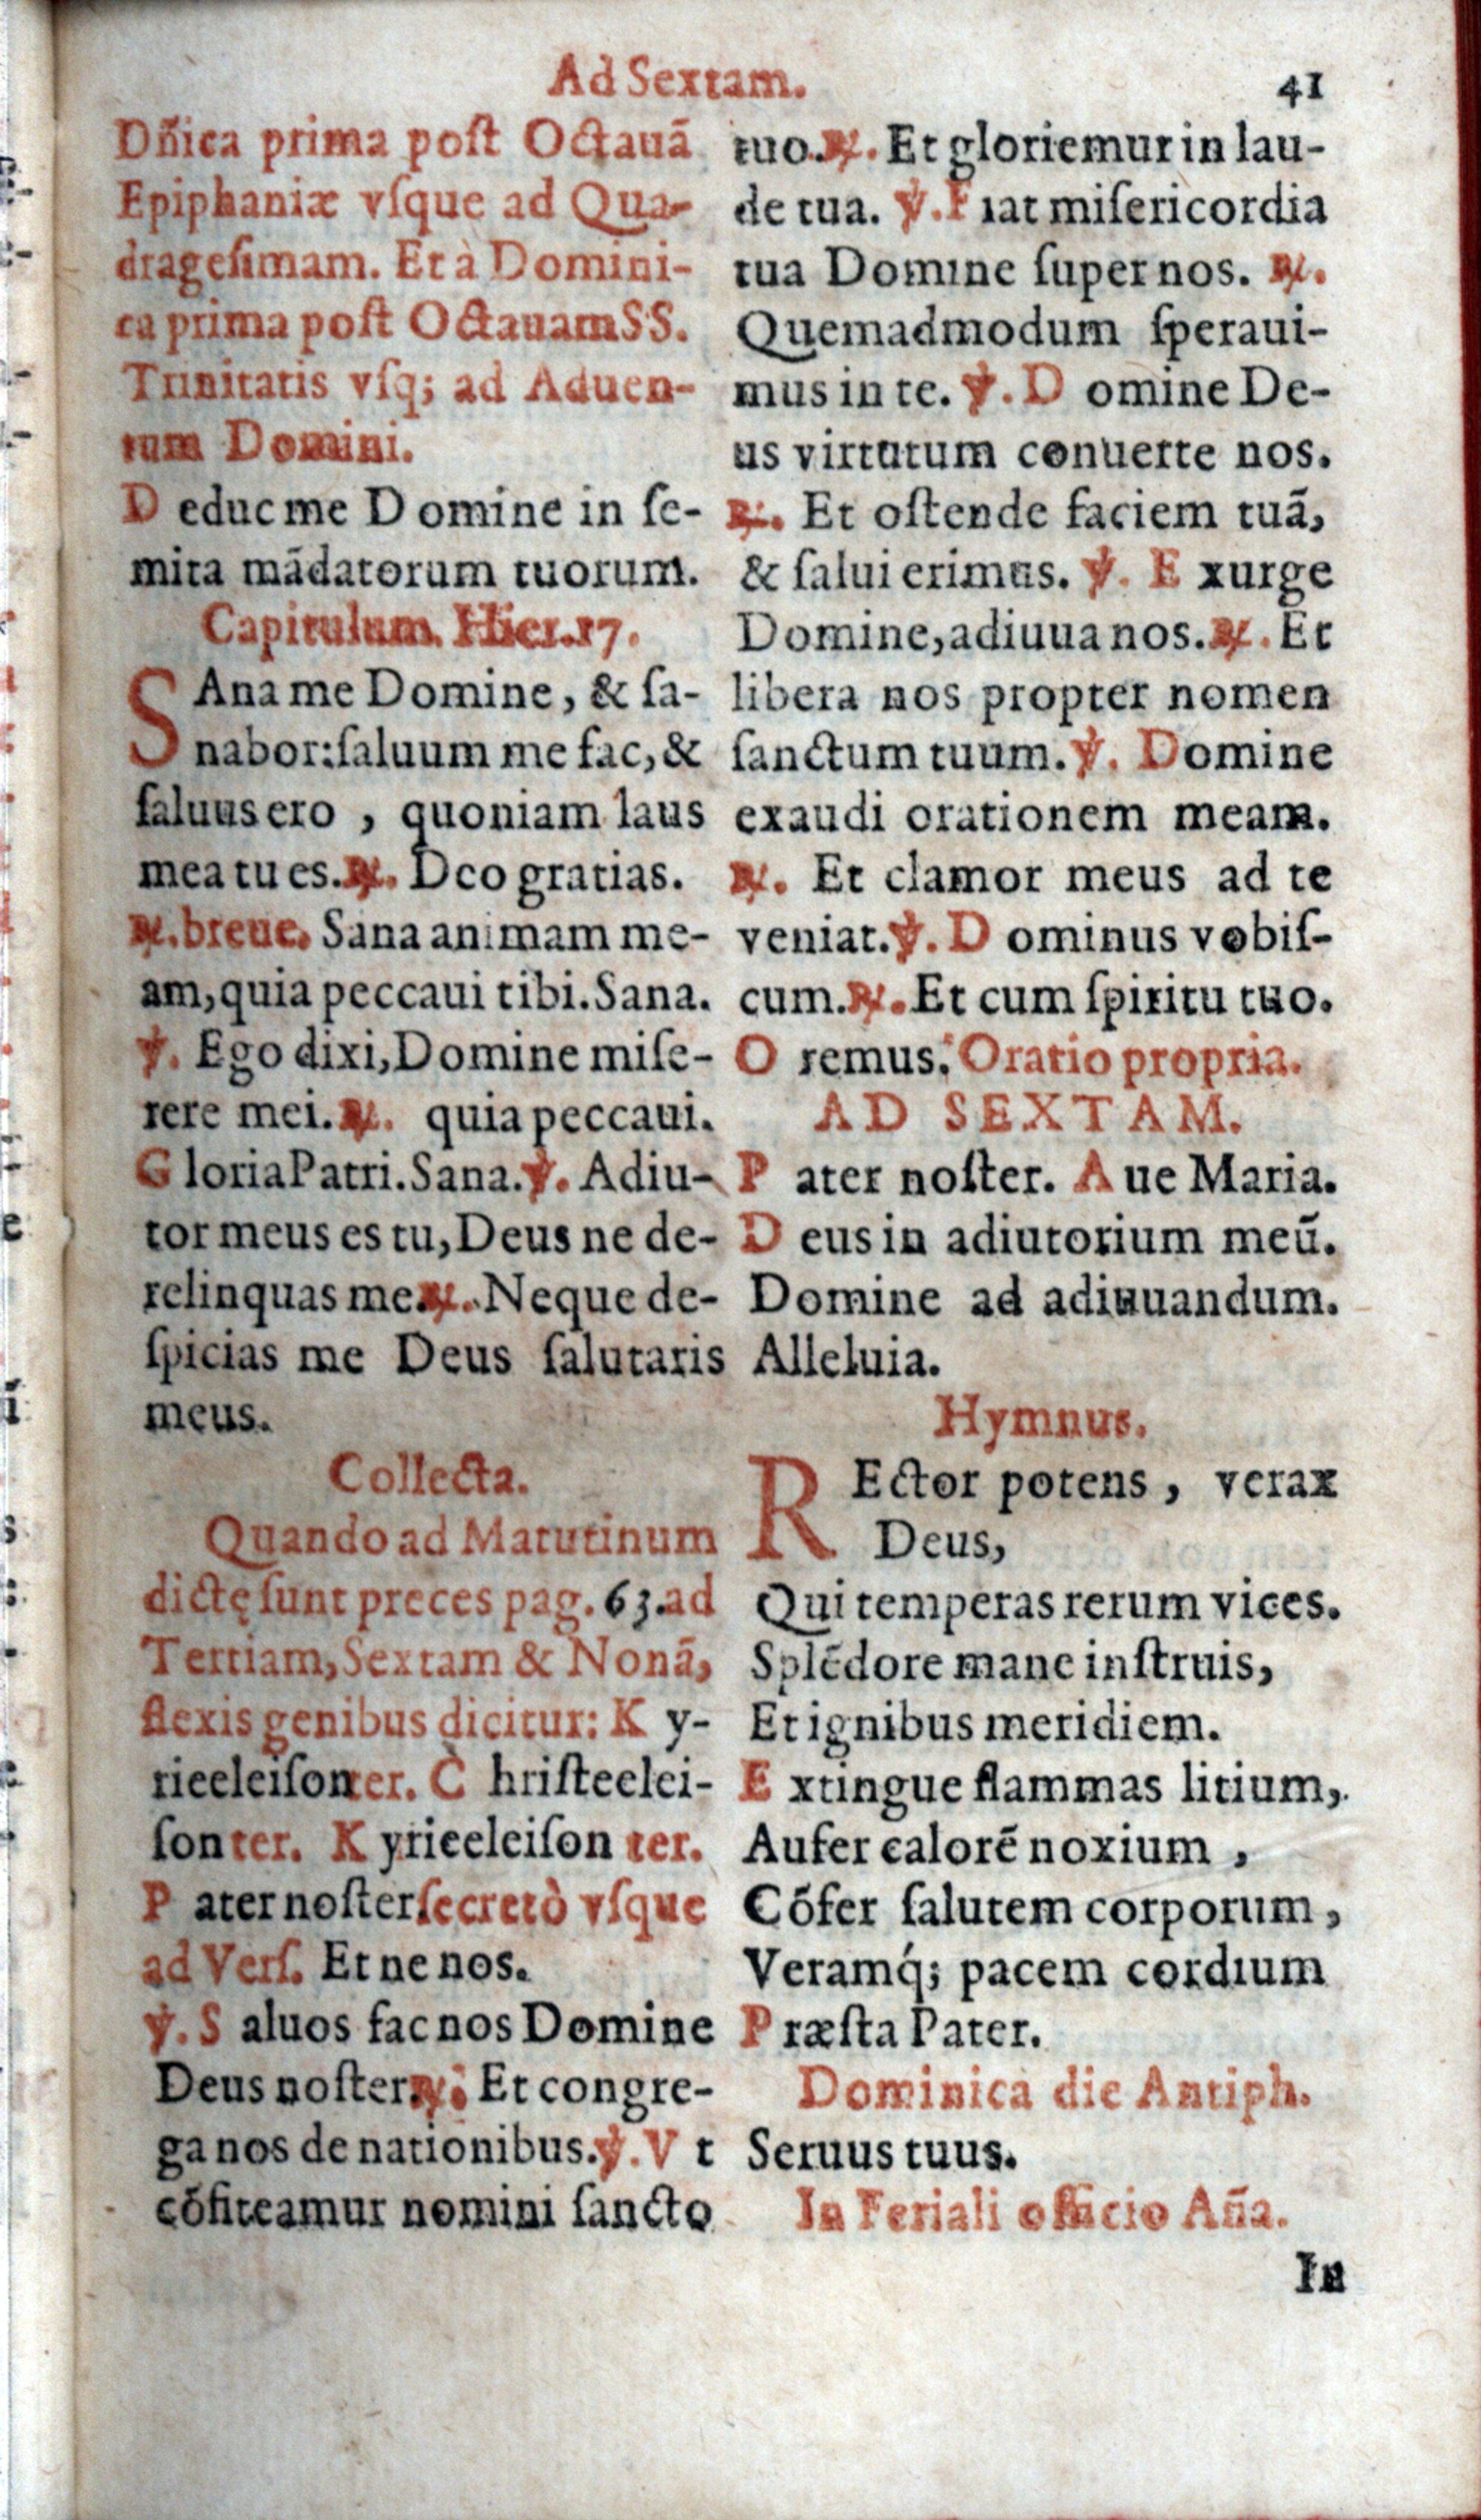 Ad Sextam.
41
Dñica prima poſt Octauã
Epiphaniæ vſque ad Qua-
drageſimam. Et à Domini-
ca prima poſt Octauam SS.
Trinitatis vſq; ad Aduen-
tum Domini.
D educ me Domine in ſe-
mita mãdatorum tuorum.
Capitulum. Hier. 17.
SAna me Domine, & ſa-
nabor: ſaluum me fac, &
ſaluus ero , quoniam laus
mea tu es. ℟. Deo gratias.
℟. breue. Sana animam me-
am, quia peccaui tibi. Sana.
℣. Ego dixi, Domine miſe-
rere mei. ℟. quia peccaui.
G loria Patri. Sana. ℣. Adiu-
tor meus es tu, Deus ne de-
relinquas me. ℟. Neque de-
ſpicias me Deus ſalutaris
meus.
Collecta.
Quando ad Matutinum
dictę ſunt preces pag. 63. ad
Tertiam, Sextam & Nonã,
flexis genibus dicitur: K y-
rieeleiſon ter. C hriſteelei-
ſon ter. K yrieeleiſon ter.
P ater noſter. ſecretò vſque
ad Verſ. Et ne nos.
℣. S aluos fac nos Domine
Deus noſter. ℟. Et congre-
ga nos de nationibus. ℣. V t
cõfiteamur nomini ſancto
tuo. ℟. Et gloriemur in lau-
de tua. ℣. F iat miſericordia
tua Domine ſuper nos. ℟.
Quemadmodum ſperaui-
mus in te. ℣. D omine De-
us virtutum conuerte nos.
℟. Et oſtende faciem tuã,
& ſalui erimus. ℣. E xurge
Domine, adiuua nos. ℟. Et
libera nos propter nomen
ſanctum tuum. ℣. Domine
exaudi orationem meam.
℟. Et clamor meus ad te
veniat. ℣. D ominus vobiſ-
cum. ℟. Et cum ſpiritu tuo.
O remus. Oratio propria.
AD SEXTAM.
P ater noſter. A ue Maria.
D eus in adiutorium meũ.
Domine ad adiuuandum.
Alleluia.
Hymnus.
REctor potens , verax
Deus,
Qui temperas rerum vices.
Splẽdore mane inſtruis,
Et ignibus meridiem.
E xtingue flammas litium,
Aufer calorẽ noxium ,
Cõfer ſalutem corporum ,
Veramq́; pacem cordium
P ræſta Pater.
Dominica die Antiph.
Seruus tuus.
In Feriali officio Aña.
In